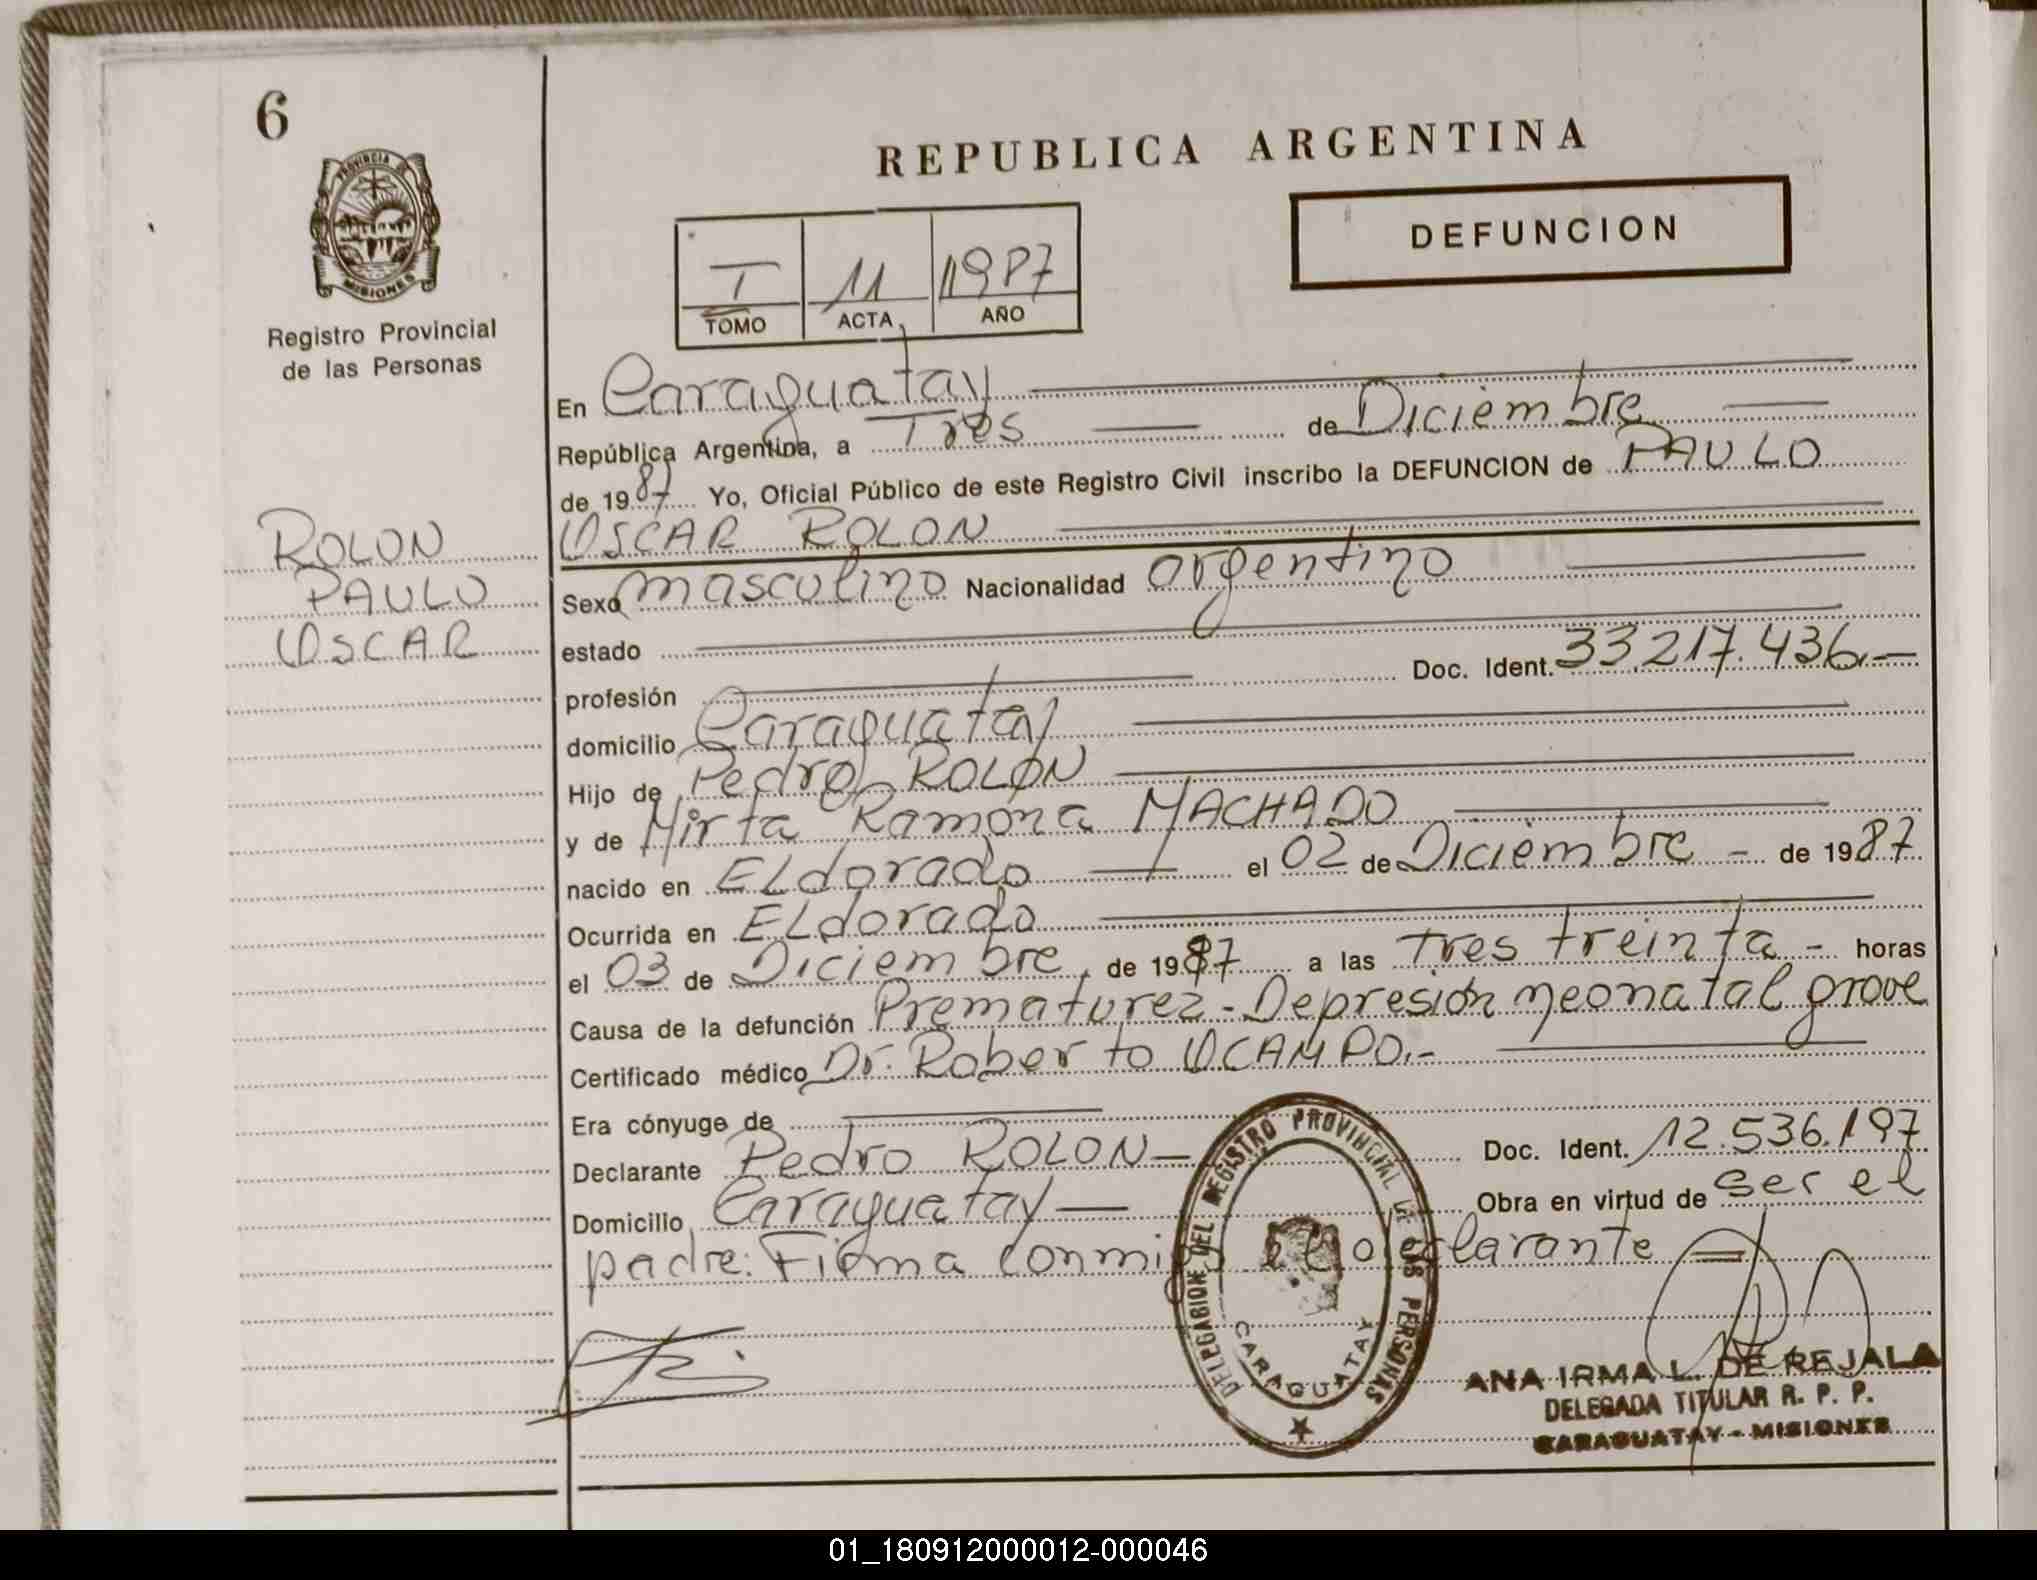 6
PROVINCIA DE
MISIONES
Registro Provincial
de las Personas
REPUBLICA ARGENTINA
DEFUNCION
I 11 1987
TOMO ACTA AÑO
En Caraguatay
República Argentina, a Tres de Diciembre
de 1987 Yo, Oficial Público de este Registro Civil inscribo la DEFUNCION de PAULO
OSCAR ROLON
ROLON
PAULO
OSCAR
Sexo masculino Nacionalidad argentino
estado
profesión Doc. Ident. 33.217.436.-
domicilio Caraguatay
Hijo de Pedro ROLON
y de Mirta Ramona MACHADO
nacido en ELdorado el 02 de Diciembre - de 1987
Ocurrida en ELdorado
el 03 de Diciembre de 1987 a las Tres treinta - horas
Causa de la defunción Prematurez - Depresión neonatal grave
Certificado médico Dr. Roberto OCAMPO.-
Era cónyuge de
Declarante Pedro ROLON Doc. Ident. 12.536.197
Domicilio Caraguatay Obra en virtud de ser el
padre: Firma conmigo el declarante
DELEGACION DEL REGISTRO PROVINCIAL DE LAS PERSONAS
CARAGUATAY
ANA IRMA L. DE REJALA
DELEGADA TITULAR R. P. P.
CARAGUATAY - MISIONES
01_180912000012-000046